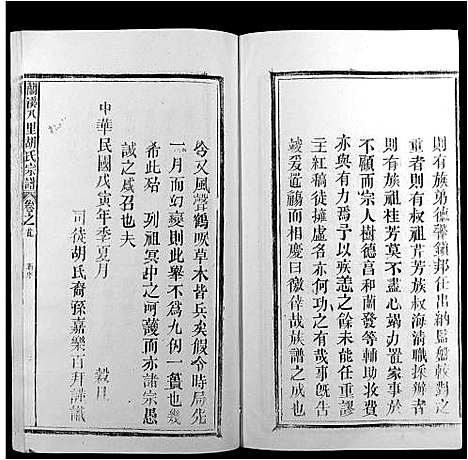 則有族弟德馨鎮邦任出納監盤較對之
重者則有叔祖芹芳族叔海清職採辦者
則有族祖桂芳莫不盡心竭力置家事於
不顧而宗人樹德昌和蘭發等輔助收費
亦與有力焉予以疾恙之餘未能任重謬
主紅稿徒擁虛名亦何功之有哉事既告
竣爰盥瀚而言曰倖哉族譜之成也
今又風聲鶴唳草木皆兵矣假令時局先
一月而幻變則此舉不為九仞一簣也幾
希此殆 列祖冥中之呵護而亦諸宗愚
誠之感召也夫
中華民國戊寅年季夏月 穀旦
司徒胡氏裔孫嘉樂百拜謹識
蘭溪八里胡氏宗譜 卷之首 新序